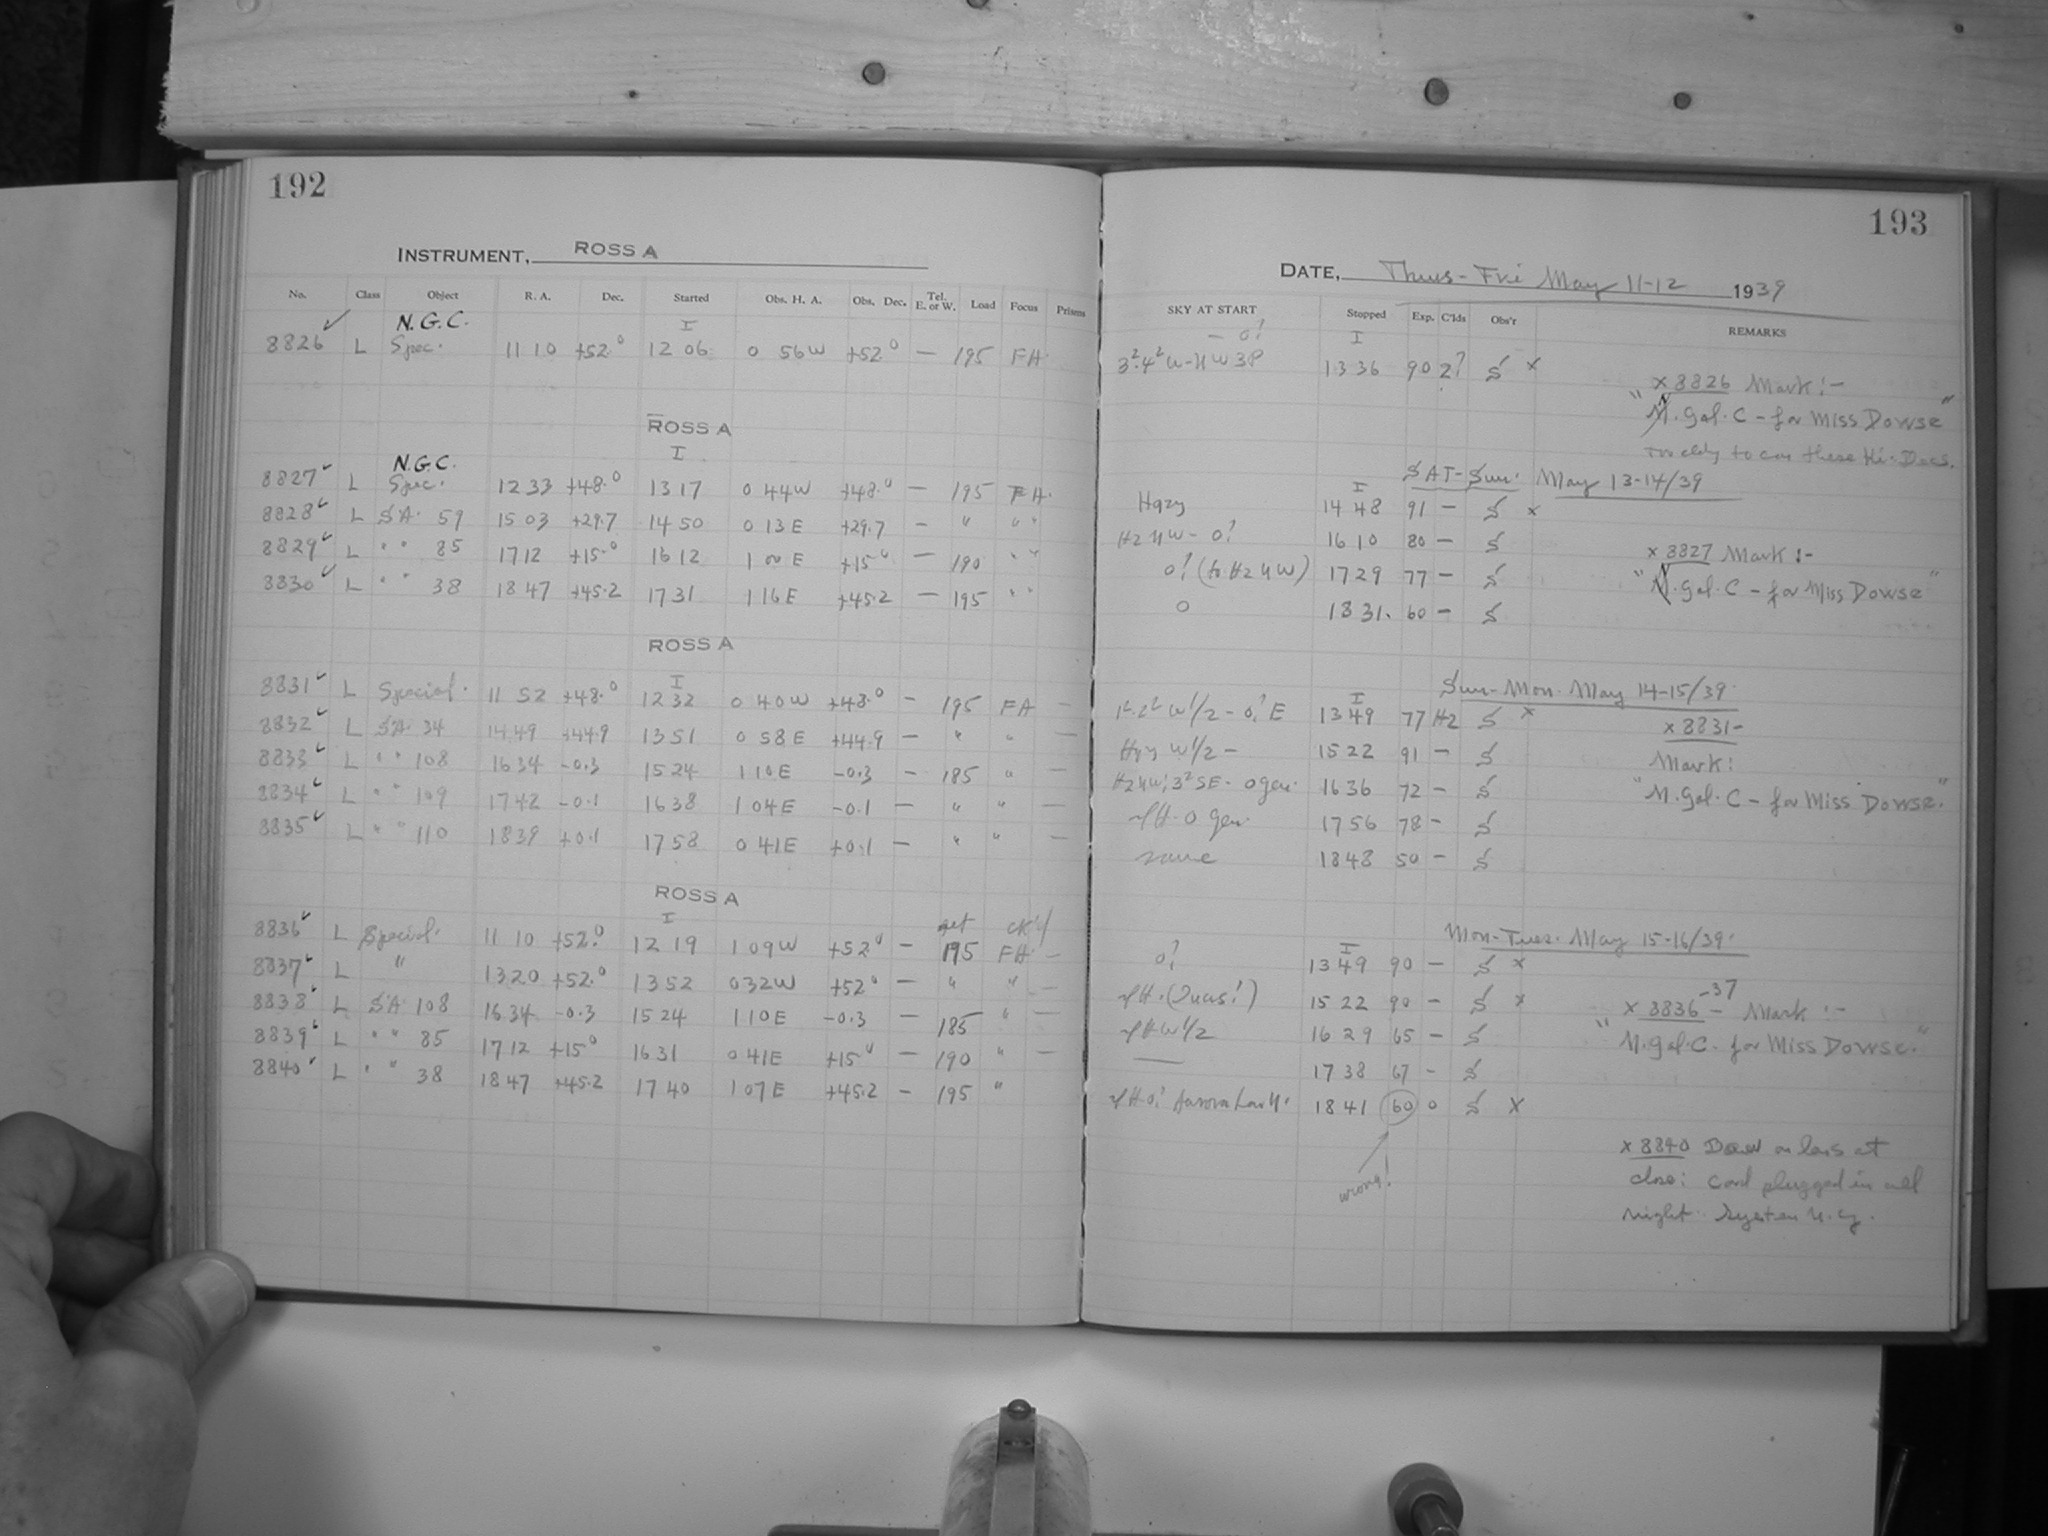 192
INSTRUMENT, ROSS A
No. Class Object R. A. Dec. Started Obs. H. A. Obs. Dec. Tel. E. or W. Load Focus Prisms
N.G.C. I
8826 ✓ L Spec. 11 10 +52.0 12 06 0 56W +52.0 — 195 FH.
ROSS A
N.G.C. I
8827 ✓ L Spec. 12 33 +48.0 13 17 0 44W +48.0 — 195 FH.
8828 ✓ L SA. 59 15 03 +29.7 14 50 0 13 E +29.7 - " " "
8829 ✓ L " " 85 17 12 +15.0 16 12 1 00 E +15.0 — 190 " "
8830 ✓ L " " 38 18 47 +45.2 17 31 1 16E +45.2 — 195 " "
ROSS A
I
8831 ✓ L Special. 11 52 +48.0 12 32 0 40W +48.0 — 195 FH —
8832 ✓ L SA. 34 14 49 +44.9 13 51 0 58E +44.9 — " " —
8833 ✓ L " " 108 16 34 -0.3 15 24 1 10E -0.3 - 185 " —
8834 ✓ L " " 109 17 42 -0.1 16 38 1 04E -0.1 — " " —
8835 ✓ L " " 110 18 39 +0.1 17 58 0 41E +0.1 — " " —
ROSS A
I
8836 ✓ L Special. 11 10 +52.0 12 19 1 09W +52.0 — 195 FH —
8837 ✓ L " 13 20 +52.0 13 52 0 32W +52.0 — " " —
8838 ✓ L SA 108 16 34 -0.3 15 24 1 10E -0.3 — 185 " —
8839 ✓ L " " 85 17 12 +15.0 16 31 0 41E +15.0 — 190 " —
8840 ✓ L " " 38 18 47 +45.2 17 40 1 07E +45.2 — 195 "
193
DATE, Thurs-Fri May 11-12 1939
SKY AT START Stopped Exp. C'lds Obs'r REMARKS
— 0? I
13 36 90 2? S x
x 8826 Mark:-
"N.Gal.C - for Miss Dowse"
I SAT-Sun. May 13-14/39
Hazy 14 48 91 — S x
16 10 80 — S
17 29 77 — S
x 8827 Mark:-
"N.Gal.C - for Miss Dowse"
0 18 31. 60 — S
Sun-Mon. May 14-15/39
I
13 49 77 Hz S x
x 8831-
15 22 91 — S
Mark:
16 36 72 — S
"N.Gal.C - for Miss Dowse."
17 56 78 - S
same 18 48 50 — S
Mon-Tues. May 15-16/39.
I
0? 13 49 90 — S x
15 22 90 — S x
x 8836-37 — Mark:-
16 29 65 — S
"N.Gal.C. for Miss Dowse."
— 17 38 67 - S
18 41 60 0 S x
wrong!
x 8840 Dew on lens at
close: Cord plugged in all
night.